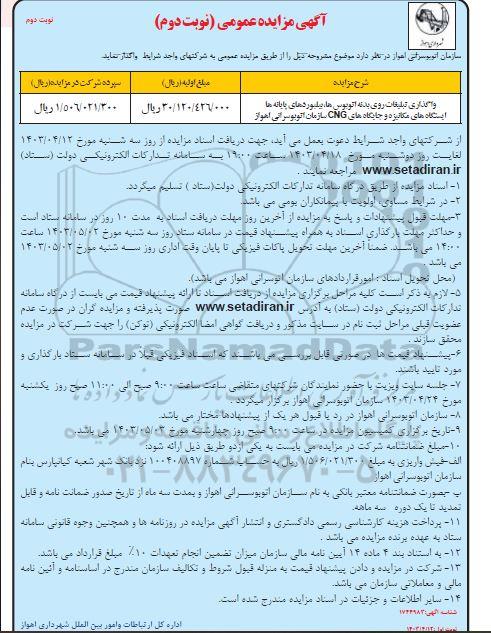 آگهی مزایده عمومی (نوبت دوم)
نوبت دوم
سازمان اتوبوسرانی اهواز در نظر دارد موضوع مشروحه ذیل را از طریق مزایده عمومی به شرکتهای واجد شرایط واگذار نماید.
شرح مزایده
مبلغ اولیه (ریال)
سپرده شرکت در مزایده (ریال)
واگذاری تبلیغات روی بدنه اتوبوس ها، بیلبوردهای پایانه ها
ایستگاه های مکانیزه و جایگاه های CNG سازمان اتوبوسرانی اهواز
۳۰/۱۲۰/۴۲۶/۰۰۰ ریال
۱/۵۰۶/۰۲۱/۳۰۰ ریال
از شرکتهای واجد شرایط دعوت بعمل می آید، جهت دریافت اسناد مزایده از روز سه شنبه مورخ ۱۴۰۳/۰۴/۱۲
لغایت روز دوشنبه مورخ ۱۴۰۳/۰۴/۱۸ ساعت ۱۹:۰۰ به سامانه تدارکات الکترونیکی دولت (ستاد)
www.setadiran.ir مراجعه نمایند .
۱- اسناد مزایده از طریق درگاه سامانه تدارکات الکترونیکی دولت(ستاد ) تسلیم میگردد.
۲- در شرایط مساوی، اولویت با پیمانکاران بومی می باشد.
۳-مهلت قبول پیشنهادات و پاسخ به مزایده از آخرین روز مهلت دریافت اسناد به مدت ۱۰ روز در سامانه ستاد است
و حداکثر مهلت بارگذاری اسناد به همراه پیشنهاد قیمت در سامانه ستاد روز سه شنبه مورخ ۱۴۰۳/۰۵/۰۲ ساعت
۱۴:۰۰ می باشد. ضمنا آخرین مهلت تحویل پاکات فیزیکی تا پایان وقت اداری روز سه شنبه مورخ ۱۴۰۳/۰۵/۰۲
می باشد .
(محل تحویل اسناد : امورقراردادهای سازمان اتوسرانی اهواز می باشد).
۵- لازم به ذکر است کلیه مراحل برگزاری مزایده از دریافت اسناد تا ارائه پیشنهاد قیمت می بایست از درگاه سامانه
تدارکات الکترونیکی دولت (ستاد) به آدرس www.setadiran.ir صورت پذیرفته و مزایده گران در صورت عدم
عضویت قبلی مراحل ثبت نام در سایت مذکور و دریافت گواهی امضا الکترونیکی (توکن) را جهت شرکت در مزایده
محقق سازند .
۶-پیشنهاد قیمت ها در صورتی قابل بررسی می باشند که اسناد فیزیکی قبلا در سامانه ستاد بارگذاری و
مورد تایید باشند.
۷- جلسه سایت ویزیت با حضور نمایندگان شرکتهای متقاضی ساعت ساعت ۹:۰۰ صبح الی ۱۱:۰۰ صبح روز یکشنبه
مورخ ۱۴۰۳/۰۴/۲۴ سازمان اتوبوسرانی اهواز برگزار میگردد .
۸- سازمان اتوبوسرانی اهواز در رد یا قبول هر یک از پیشنهادها مختار می باشد.
۹-تاریخ برگزاری کمیسیون مزایده در ساعت ۹:۰۰ صبح روز چهارشنبه مورخ ۱۴۰۳/۰۵/۰۳ می باشد.
۱۰-مبلغ ضمانتنامه شرکت در مزایده می بایست به یکی ازدو طریق ذیل ارائه شود:
الف-فیش واریزی به مبلغ ۱/۵۰۶/۰۲۱/۳۰۰ ریال به حساب شماره ۱۰۰۴۰۸۸۹۷ نزد بانک شهر شعبه کیانپارس بنام
سازمان اتوبوسرانی اهواز
ب -بصورت ضمانتنامه معتبر بانکی به نام سازمان اتوبوسرانی اهواز و بمدت سه ماه از تاریخ صدور ضمانت نامه و قابل
تمدید تا یک دوره سه ماهه.
۱۱- پرداخت هزینه کارشناسی رسمی دادگستری و انتشار آگهی مزایده در روزنامه ها و همچنین وجوه قانونی سامانه
ستاد به عهده برنده مزایده می باشد .
۱۲- به استناد بند ۴ ماده ۱۴ آیین نامه مالی سازمان میزان تضمین انجام تعهدات ۱۰٪ مبلغ قرارداد می باشد.
۱۳- شرکت در مزایده و دادن پیشنهاد قیمت به منزله قبول شروط و تکالیف سازمان مندرج در اساسنامه و آئین نامه
مالی و معاملاتی سازمان می باشد.
۱۴- سایر اطلاعات و جزئیات در اسناد مزایده مندرج شده است.
شناسه آگهی: ۱۷۴۴۹۸۳
نوبت اول: ۱۴۰۳/۴/۱۲
اداره کل ارتباطات وامور بین الملل شهرداری اهواز
ParsNamadData
۰۲۱-۸۸۳۴۹۶۷۰-۵